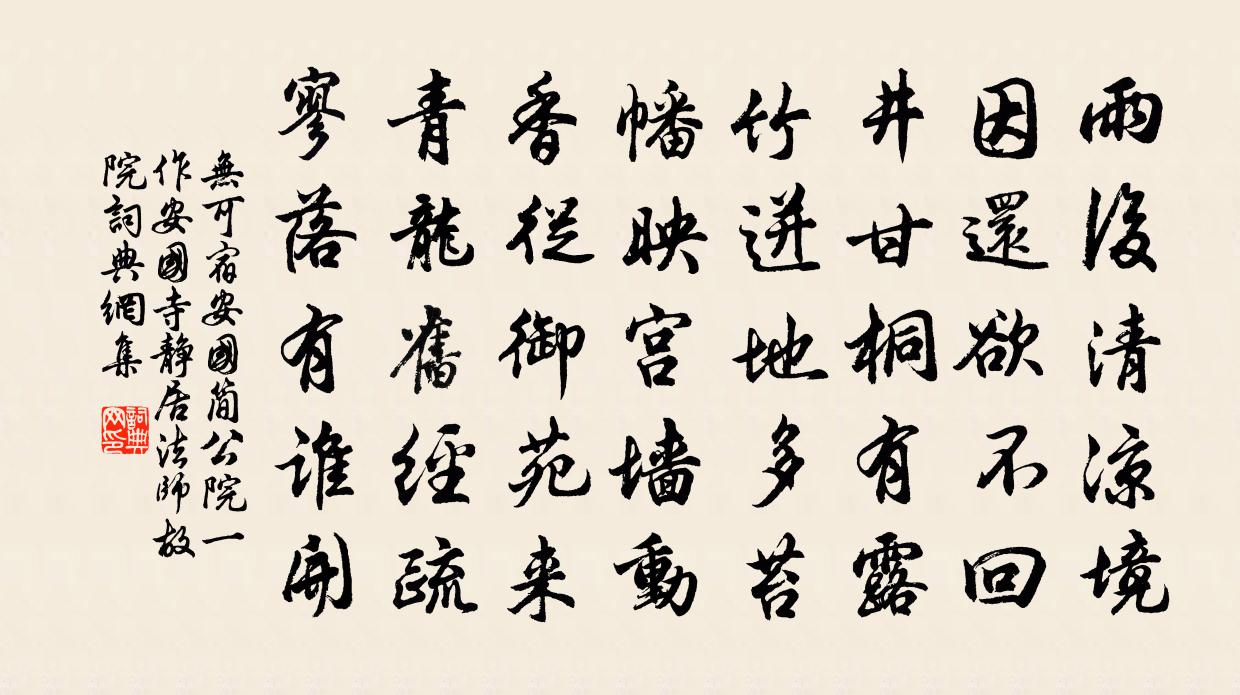 雨後清涼境
因還欲不回
井甘桐有露
竹迸地多苔
幡映宫墙動
香從御苑来
青龍舊經疏
寥落有誰開
無可宿安國簡公院一
作安國寺静居法師故
院詞典網集
詞典
网印